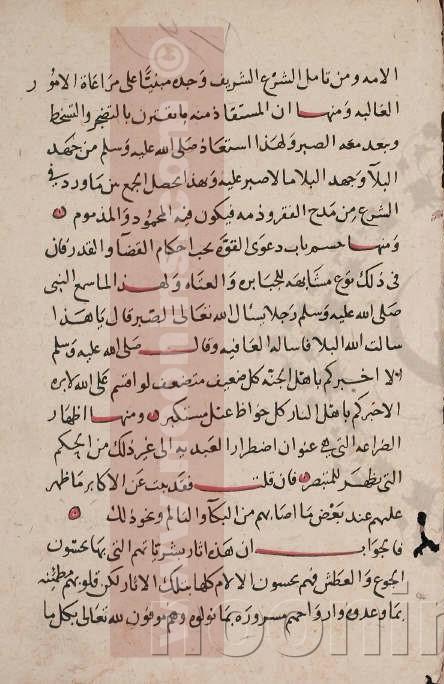 الامه ومن تامل الشرع الشريف وجده مبنيا على مراعاة الامور
الغالبه ومنها ان المستعاذ منه ما يقترن بالتضجر والتسخط
وبعد معه الصبر ولهذا استعاذ صلى الله عليه وسلم من جهد
البلآ وجهد البلا ما لا صبر عليه وبهذا يحصل الجمع بين ما ورد في
الشرع من مدح الفقر وذمه فيكون فيه المحمود والمذموم
ومنها حسم باب دعوى القوة تحت احكام القضا والقدر فان
في ذلك نوع مشابهه للجبابره والعتاه ولهذا لما سمع النبي
صلى الله عليه وسلم رجلا يسال الله تعالى الصبر قال يا هذا
سالت الله البلا فاساله العافيه وقال صلى الله عليه وسلم
الا اخبركم باهل الجنه كل ضعيف متضعف لو اقسم على الله لابره
الا اخبركم باهل النار كل جواظ عتل مستكبر ومنها اظهار
الضراعه التي هي عنوان اضطرار العبد الى غير ذلك من الحكم
التي يظهر للمتبصر فان قلت فقد يت عن الاكابر ما ظهر
عليهم عند بعض ما اصابهم من البكآ والتالم ونحو ذلك
فالجواب ان هذه اثار بشرياتهم التي بها يحسون
الجوع والعطش فهم يحسون الالام كلها بتلك الاثار لكن قلوبهم مطمئنه
بما وعدوه وارواحهم مسروره بما نولوه وهم موفون لله تعالى بكل ما